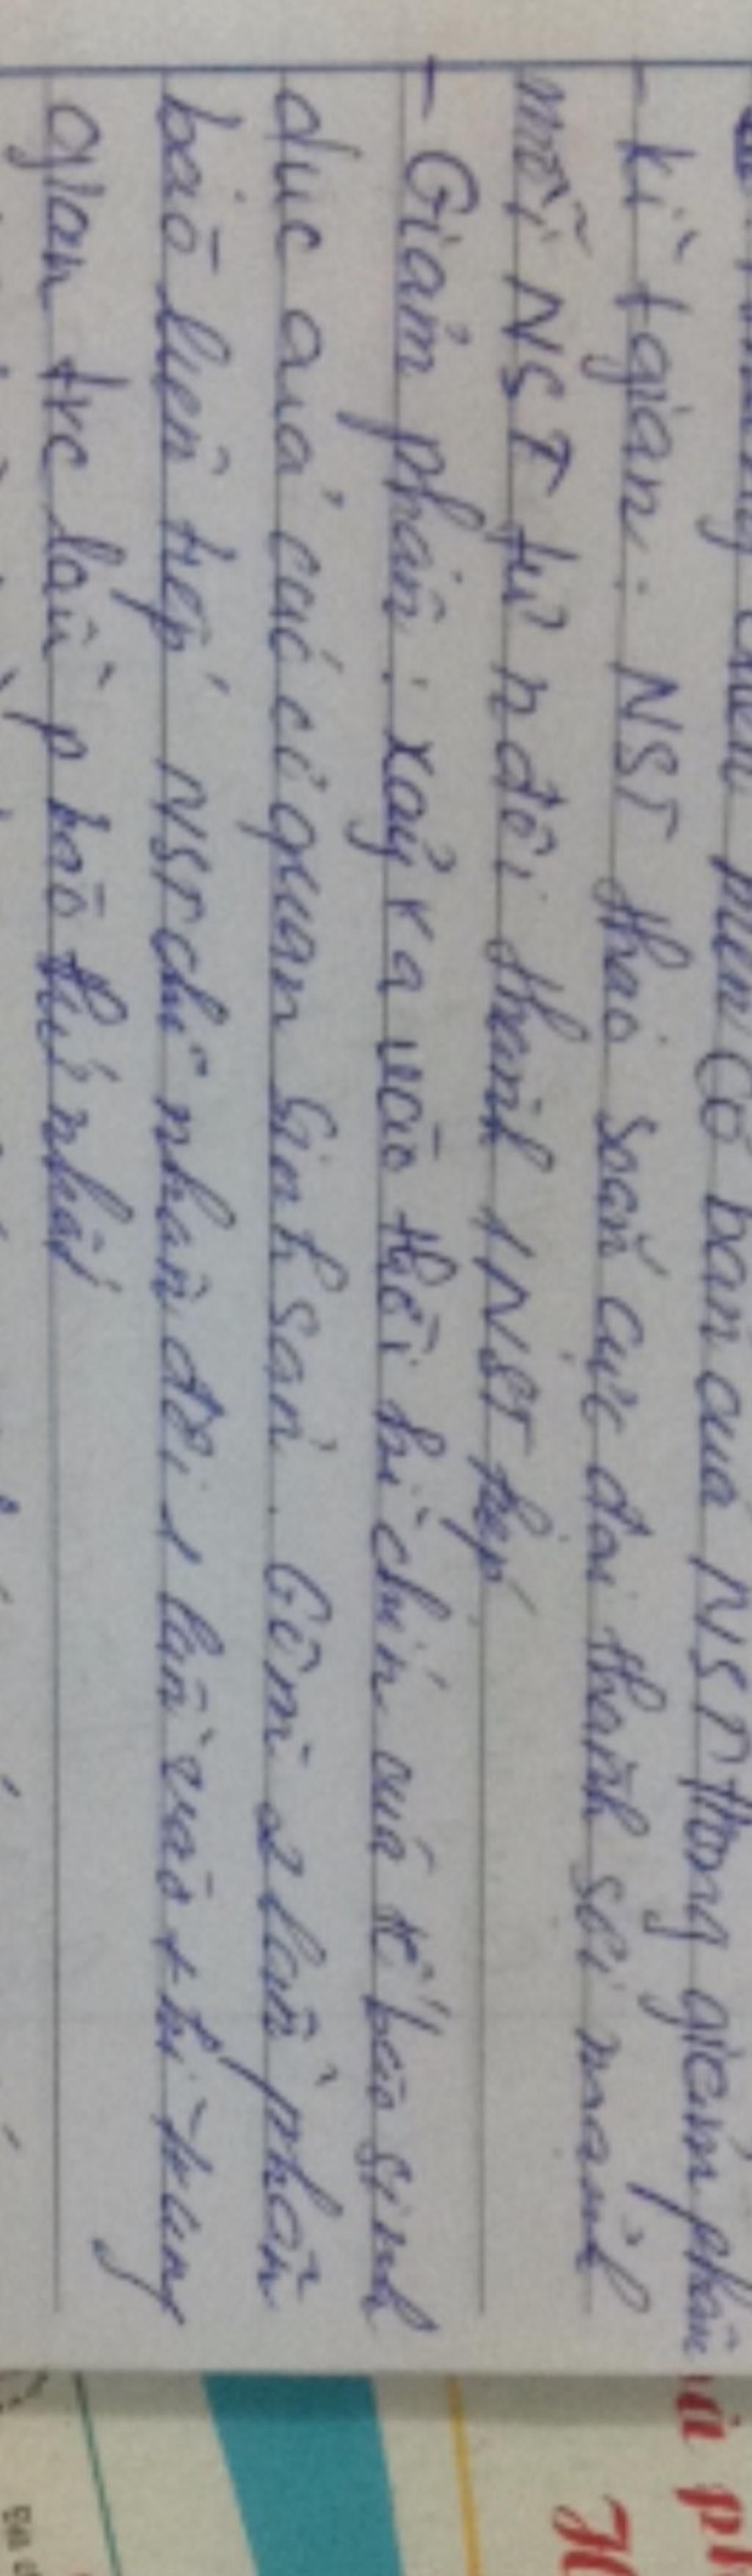 những diễn biến cơ bản của NST trong giảm phân
- kì tgian: NST tháo soắn cực đại thành sợi mảnh
mỗi NST tự n đôi thành 1 NST kép
- Giảm phân: xảy ra vào thời kì chín của tế bào sinh
dục của các cơ quan sinh sản. Gồm 2 lần phân
bào liên tiếp NST chỉ nhân đôi 1 lần vào kì trung
gian trc lần p bào thứ nhất